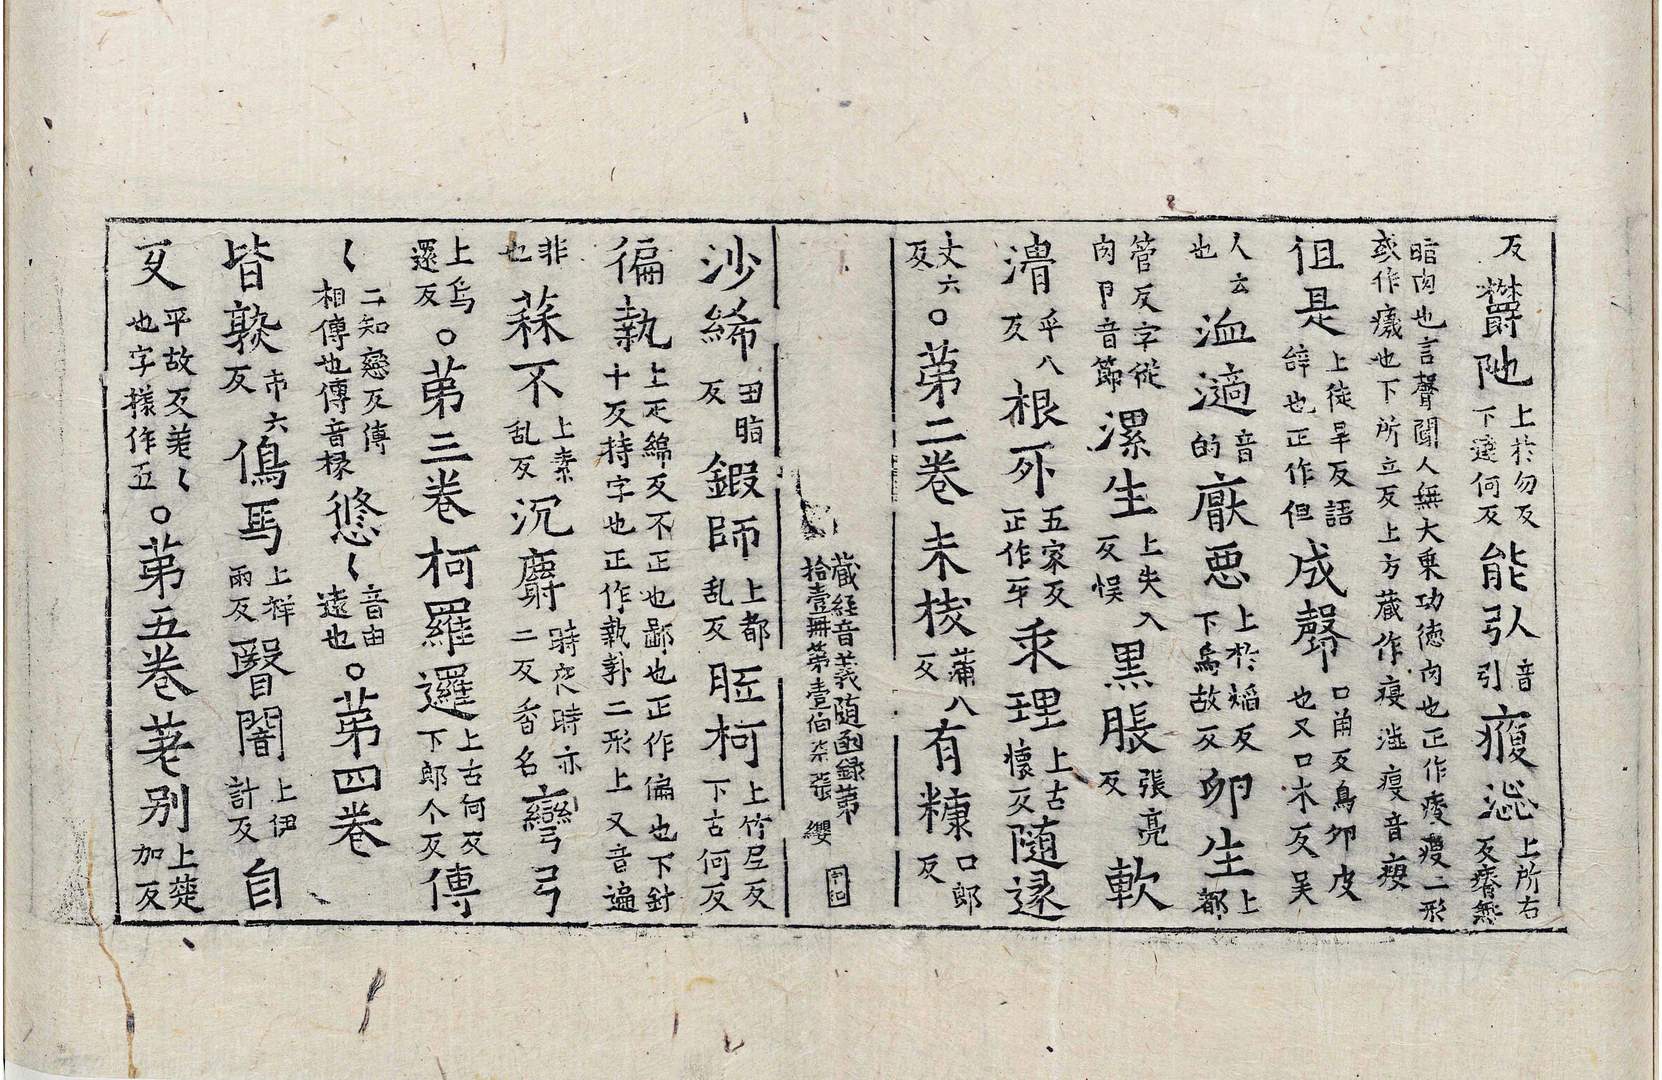 反欝陁上於勿反下達何反能引人音引㾱澁上所右反瘠無
㿜肉也言聲聞人無大乗功德肉也正作㾪𤸃二形
或作癘也下所立反上方蔵作㾪澁㾪音瘦
伹是上徒旱反語辞也正作但成㲉口角反鳥夘皮也又口木反吴
人云也洫適音的厭悪上於槄反下烏故反卵生上都
管反字從肉卩音節漯生上失入反悮黒脹張亮反軟
㵮乎八反根外五家反正作牙乗理上古懷反隨遂
丈六反。苐二卷未柭蒲八反有糠口郎反
蔵経音義随函録第拾壹冊第壹伯柒張 纓
沙絺田𦙁反鍛師上都乱反胵柯上竹尼反下古何反
徧執上疋綿反不正也鄙也正作偏也下針十反持字也正作執𫼜二形上又音遍
非也蒜不上素乱反沉麝時夜時亦二反香名彎弓
上烏還反。苐三卷柯羅邏上古何反下郎个反傳
〻二知戀反傳相傳也傳音椽悠〻音由遠也。苐四卷
皆孰市六反爲馬上祥兩反翳闇上伊計反自
互平故反差〻也字樣作五。苐五卷差别上楚加反